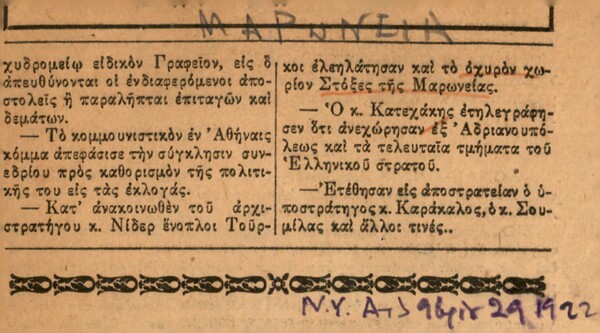 ΜΑΡΩΝΕΙΑ
χυδρομείῳ εἰδικὸν Γραφεῖον, εἰς ὃ
ἀπευθύνονται οἱ ἐνδιαφερόμενοι ἀπο-
στολεῖς ἢ παραλῆπται ἐπιταγῶν καὶ
δεμάτων.
— Τὸ κομμουνιστικὸν ἐν Ἀθήναις
κόμμα ἀπεφάσισε τὴν σύγκλησιν συν-
εδρίου πρὸς καθορισμὸν τῆς πολιτι-
κῆς του εἰς τὰς ἐκλογάς.
— Κατ' ἀνακοινωθὲν τοῦ ἀρχι-
στρατήγου κ. Νίδερ ἔνοπλοι Τοῦρ-
κοι ἐλεηλάτησαν καὶ τὸ ὀχυρὸν χω-
ρίον Στόξες τῆς Μαρωνείας.
— Ὁ κ. Κατεχάκης ἐτηλεγράφη-
σεν ὅτι ἀνεχώρησαν ἐξ Ἀδριανουπό-
λεως καὶ τὰ τελευταῖα τμήματα τοῦ
Ἑλληνικοῦ στρατοῦ.
—Ἐτέθησαν εἰς ἀποστρατείαν ὁ ὑ-
ποστράτηγος κ. Καράκαλος, ὁ κ. Σου-
μίλας καὶ ἄλλοι τινές..
Ν.Υ. 29 1922